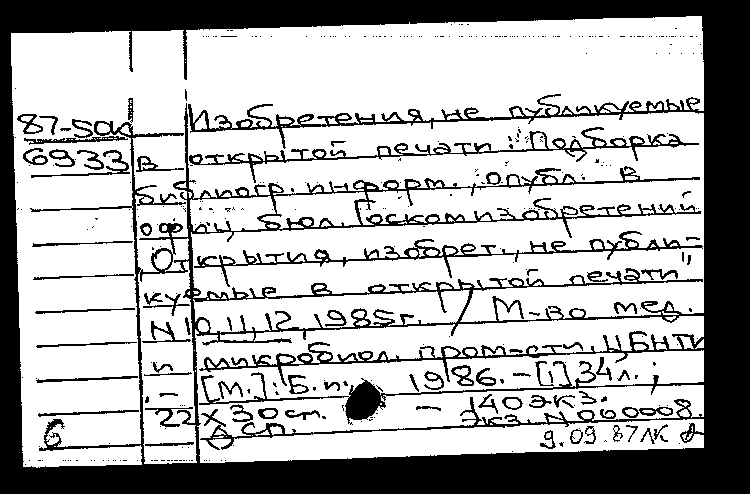 87-5дсп Изобретения, не публикуемые
6933 в открытой печати: Подборка
библиогр. информ., опубл. в
офиц. бюл. Госкомизобретений
"Открытия, изобрет., не публи-
куемые в открытой печати"
N 10, 11, 12, 1985г. / М-во мед.
и микробиол. пром-сти, ЦБНТИ
.- [М.]: Б.и., 1986. - [1], 34 л.;
22 х 30 см. - 140 экз.
6 Дсп. Экз. N 000008.
9.09.87 ЛК